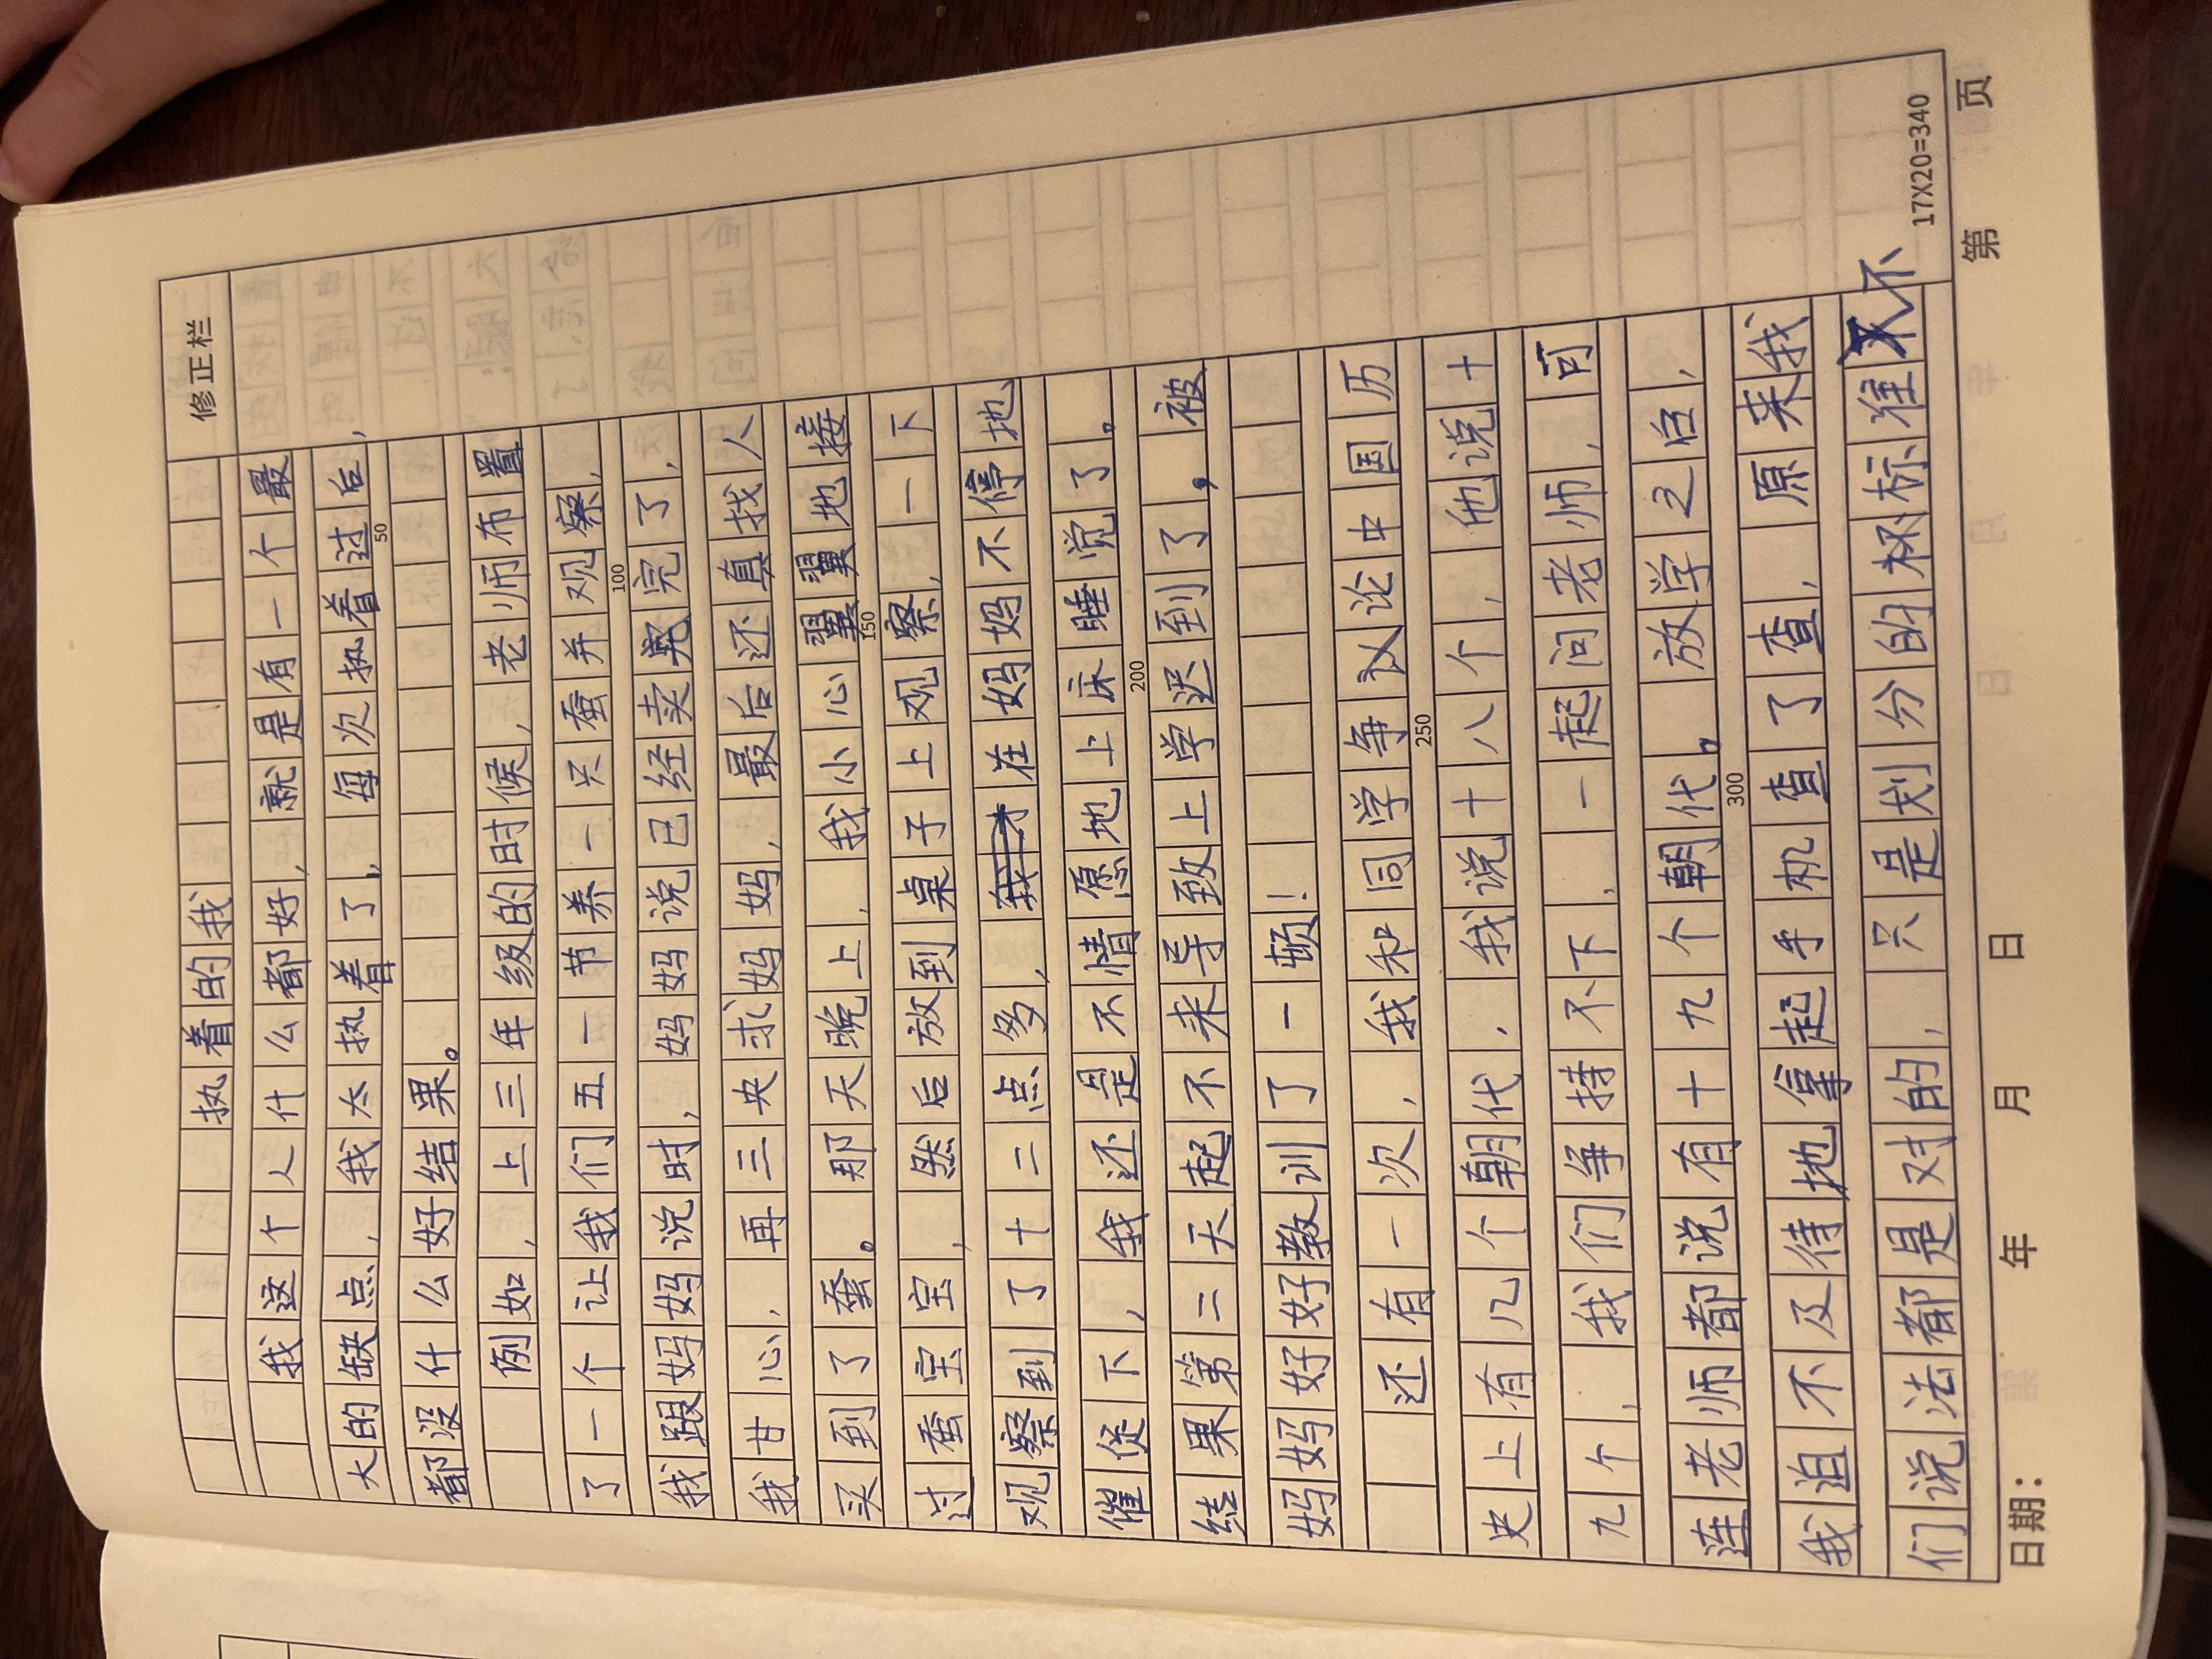 修正栏
执着的我
我这个人什么都好，就是有一个最
大的缺点，我太执着了，每次执着过后，
都没什么好结果。
例如，上三年级的时候，老师布置
了一个让我们五一节养一只蚕并观察，
我跟妈妈说时，妈妈说已经卖完了，
我甘心，再三央求妈妈，最后还真找人
买到了蚕。那天晚上，我小心翼翼地接
过蚕宝宝，然后放到桌子上观察，一下
观察到了十二点多，在妈妈不停地
催促下，我还是不情愿地上床睡觉了。
结果第二天起不来导致上学迟到了，被
妈妈好好教训了一顿！
还有一次，我和同学争议论中国历
史上有几个朝代，我说十八个，他说十
九个，我们争持不下，一起问老师，可
连老师都说有十九个朝代。放学之后，
我迫不及待地拿起手机查了查，原来我
们说法都是对的，只是划分的标准不
50
100
150
200
250
300
17X20=340
日期： 年 月 日 第 页